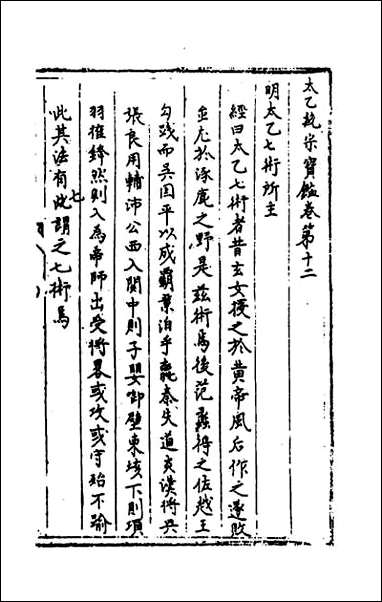 太乙統宗寶鑑卷第十二
明太乙七術所主
經曰太乙七術者昔玄女授之於黃帝風后作之遂敗
蚩尤於涿鹿之野是茲術焉後范蠡得之佐越王
勾踐而吳国平以成霸業洎乎嬴秦失道炎漢將興
張良用輔沛公西入関中則子嬰啣璧東垓下則項
羽摧鋒然則入為帝師出受將畧或攻或守殆不踰
此其法有七此謂之七術焉